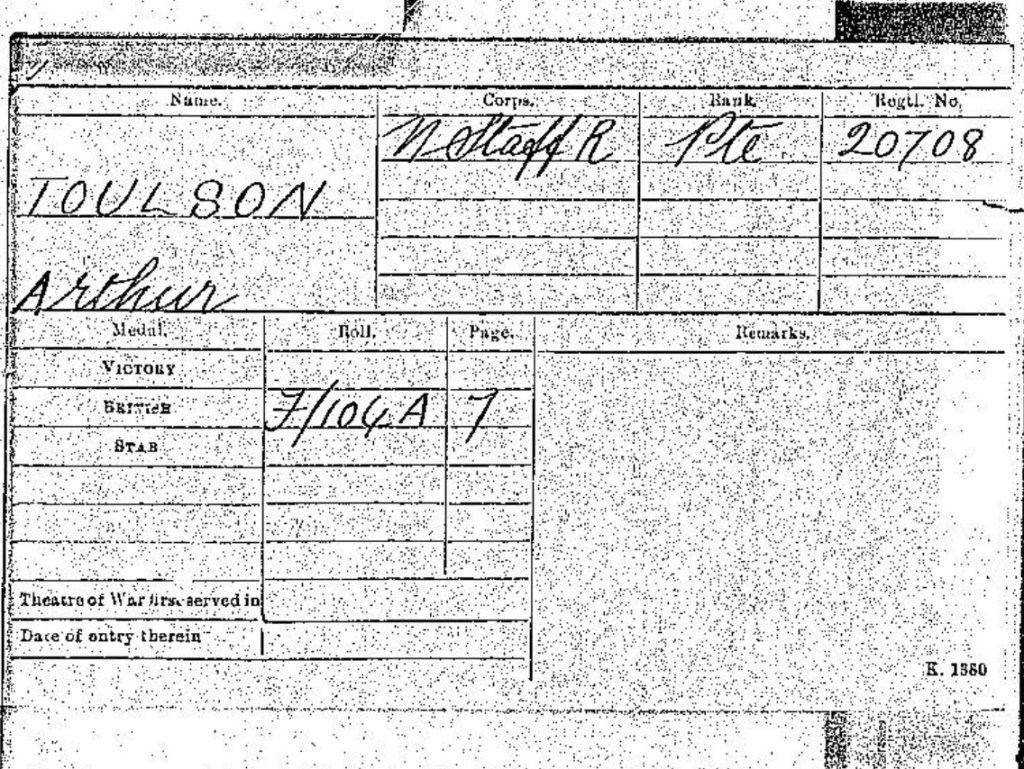 Name. Corps. Rank. Regtl. No.
N Staff R Pte 20708
TOULSON
Arthur
Medal. Roll. Page. Remarks.
VICTORY
BRITISH F/104A 7
STAR
Theatre of War first served in
Date of entry therein
K. 1380